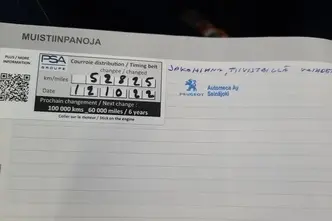 MUISTIINPANOJA
PLUS / MORE
INFORMATION
PSA
GROUPE
Courroie distribution / Timing belt
changée / changed
km/miles
52825
Date
121022
Prochain changement / Next change :
100 000 kms 60 000 miles / 6 years
Coller sur le moteur / Stick on the engine
JAKOHIHNA, TIIVISTEILLÄ
PEUGEOT
Automeca Ay
Seinäjoki